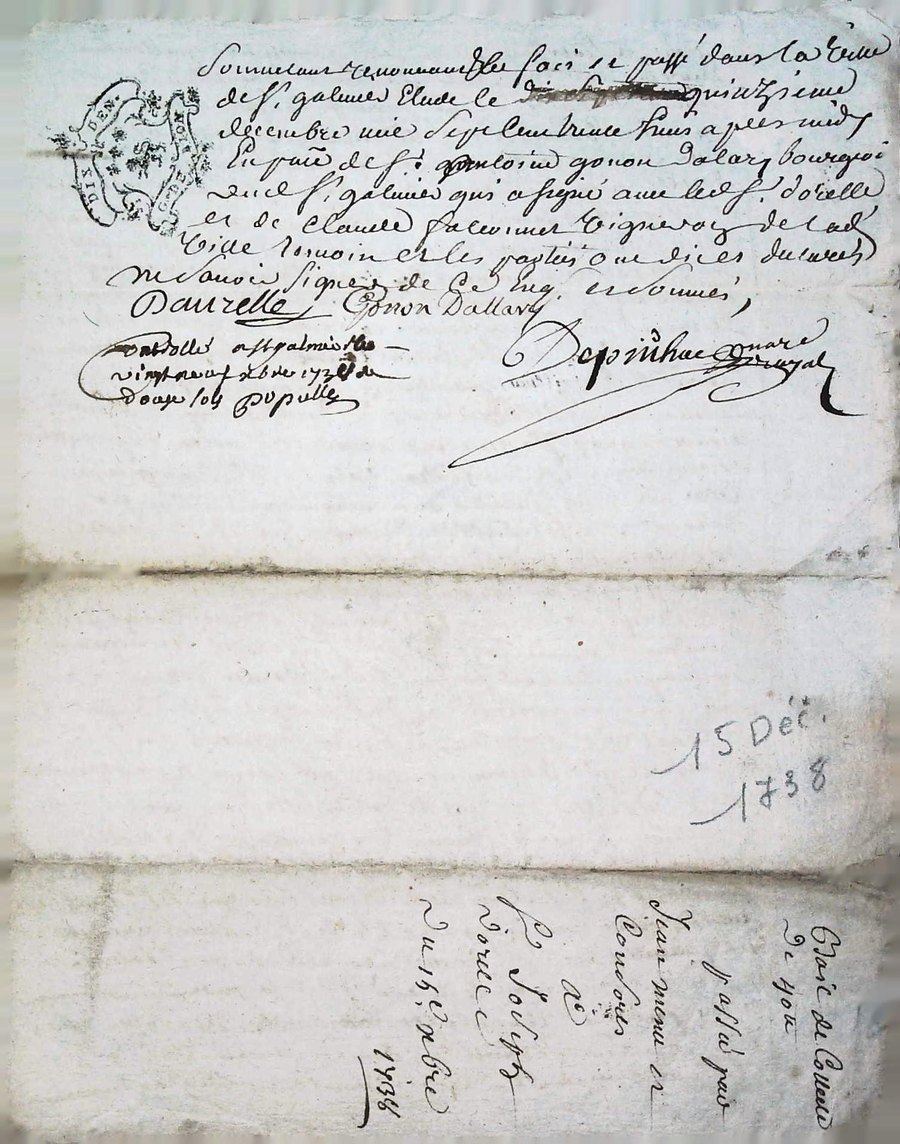 DIX DEN.
G. DE LYON
Soumettant renonceant &c faict et passé dans la ville
de St. galmier Etude le quinzieme
decembre mil sept cent trente huit apres midy
En pnce de Sr. antoine gonon dalary bourgeois
dud St. galmier qui a signé avec led Sr. d'orelle
et de claude falconnet vigneron de lad
Ville temoin et les parties ont dit et declaré
ne Scavoir signer de ce enq. et Sommés,
Daurelle Gonon Dallary
Controllé a st galmier le
vingt neuf xbre 1738
douze sols populle
Depiuhac
notre royal
15 Déc.
1738
de
passé par
Jean
a
Sr Joseph
Dorelle
Du 15e xbre
1738